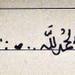 الحمد لله .. ..